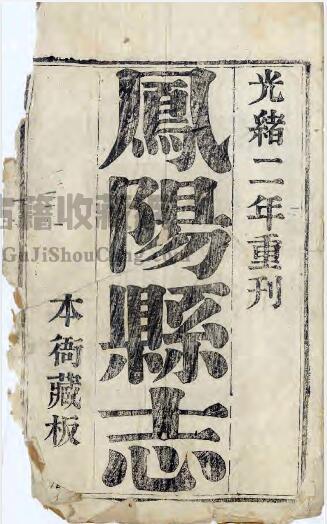 光緒二年重刊
鳳陽縣志
本衙藏板
古籍收藏
GuJiShouCang.com